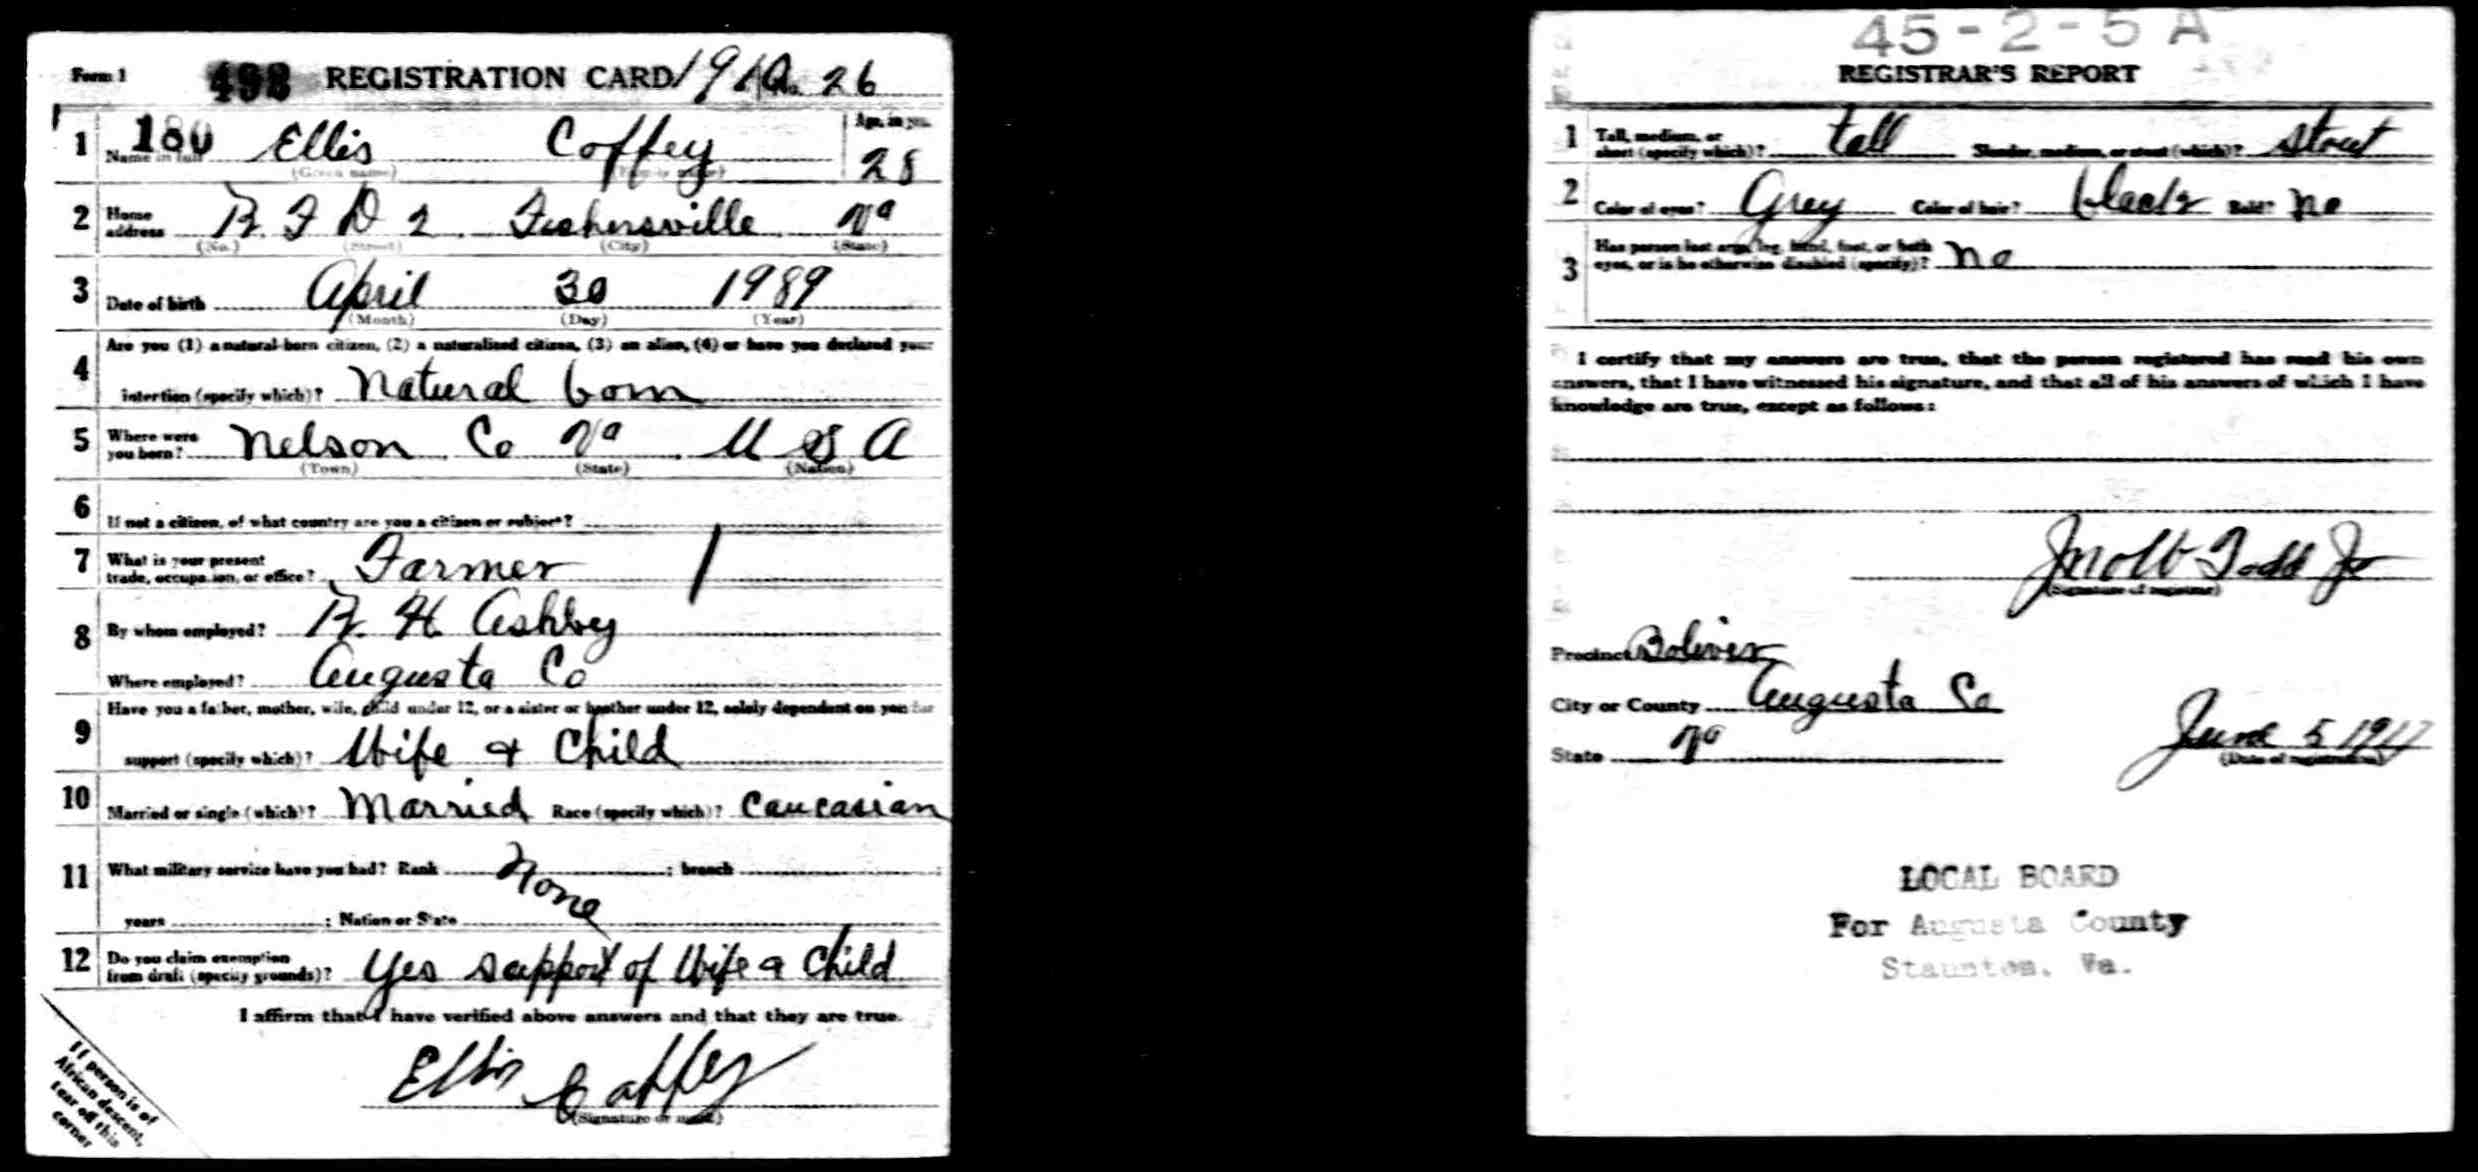 Form 1 498 REGISTRATION CARD 191 No. 26
1 180 Name in full Ellis Coffey Age, in yrs. 28
(Given name) (Family name)
2 Home address R. F D 2 Fishersville Va
(No.) (Street) (City) (State)
3 Date of birth April 30 1989
(Month) (Day) (Year)
4 Are you (1) a natural-born citizen, (2) a naturalized citizen, (3) an alien, (4) or have you declared your
intention (specify which)? Natural born
5 Where were you born? Nelson Co Va U S A
(Town) (State) (Nation)
6 If not a citizen, of what country are you a citizen or subject?
7 What is your present trade, occupation, or office? Farmer
8 By whom employed? R. H Ashby
Where employed? Augusta Co
9 Have you a father, mother, wife, child under 12, or a sister or brother under 12, solely dependent on you for
support (specify which)? Wife & Child
10 Married or single (which)? Married Race (specify which)? Caucasian
11 What military service have you had? Rank None ; branch ;
years ; Nation or State
12 Do you claim exemption from draft (specify grounds)? Yes support of Wife & Child
I affirm that I have verified above answers and that they are true.
Ellis Coffey
(Signature or mark)
If person is of
African descent,
tear off this
corner
45-2-5 A
REGISTRAR'S REPORT
1 Tall, medium, or short (specify which)? tall Slender, medium, or stout (which)? Stout
2 Color of eyes? Grey Color of hair? black Bald? no
3 Has person lost arm, leg, hand, foot, or both eyes, or is he otherwise disabled (specify)? no
I certify that my answers are true, that the person registered has read his own
answers, that I have witnessed his signature, and that all of his answers of which I have
knowledge are true, except as follows:
Jno W Todd Jr
(Signature of registrar)
Precinct Boliver
City or County Augusta Co
State Va June 5 1917
(Date of registration)
LOCAL BOARD
For Augusta County
Staunton, Va.